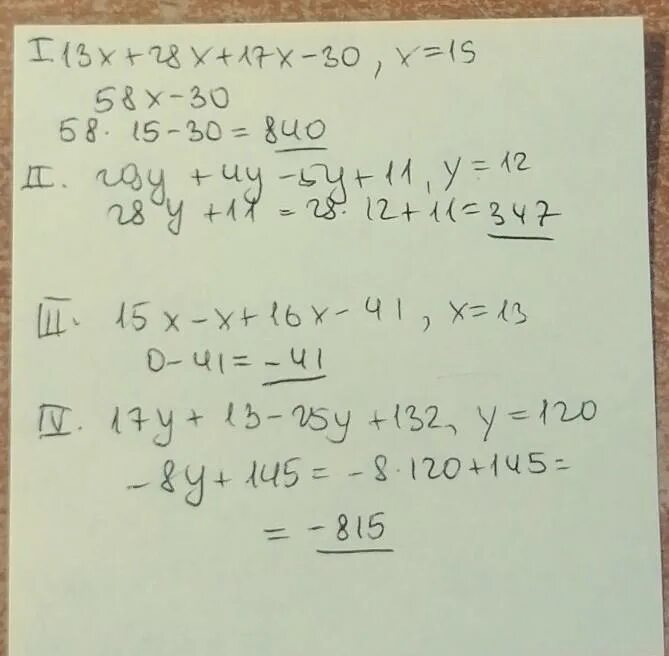 I. 13x+28x+17x-30, x=15
58x-30
58·15-30=840
II. 29y+4y-5y+11, y=12
28y+11=28·12+11=347
III. 15x-x+16x-41, x=13
0-41=-41
IV. 17y+13-25y+132, y=120
-8y+145=-8·120+145=
=-815